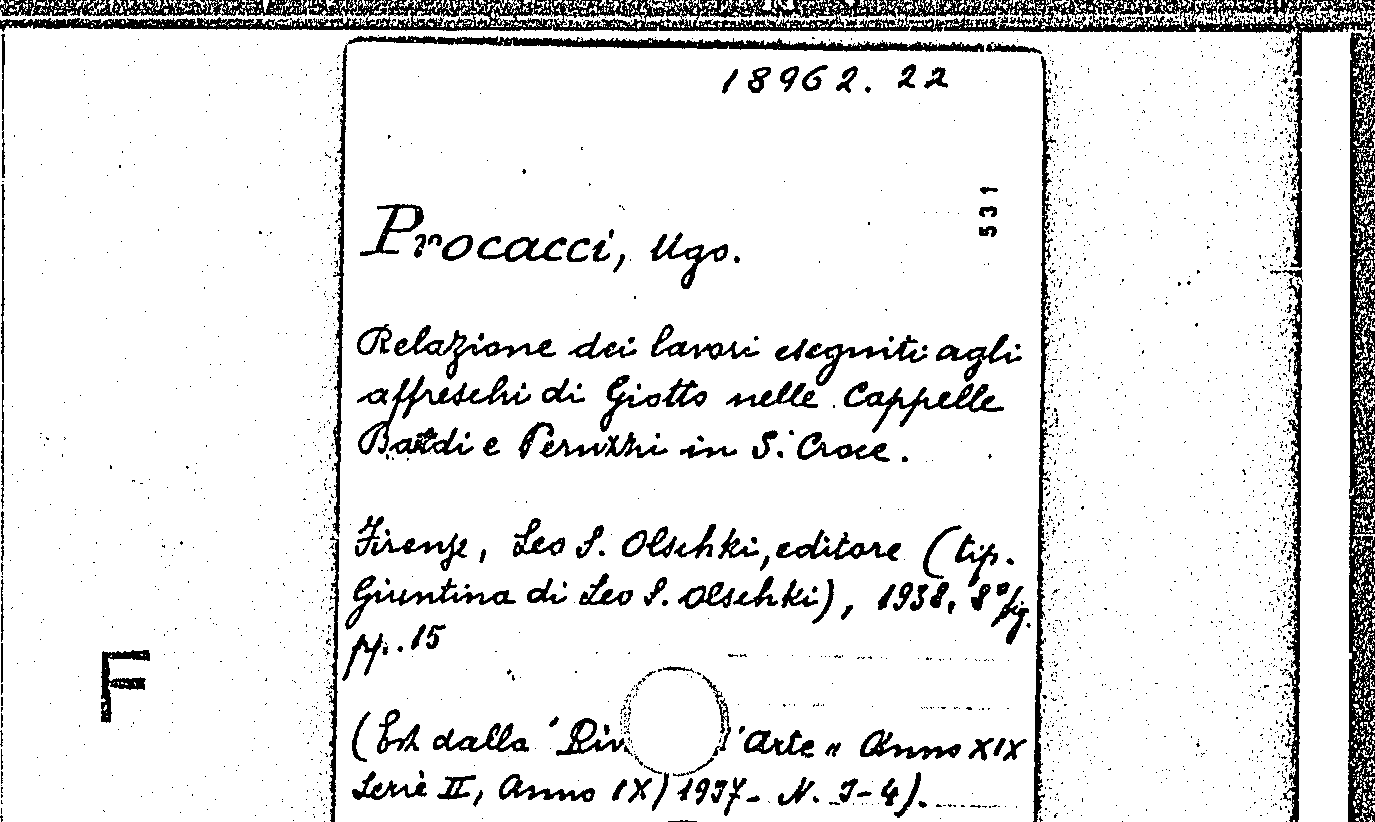 18962. 22
531
Procacci, Ugo.
Relazione dei lavori eseguiti agli
affreschi di Giotto nelle Cappelle
Bardi e Peruzzi in S. Croce.
Firenze, Leo S. Olschki, editore (tip.
Giuntina di Leo S. Olschki), 1938, 8° fig.
pp. 15
F
(Est. dalla "Riv d'Arte" Anno XIX
Serie II, Anno IX) 1937 - N. 3-4).